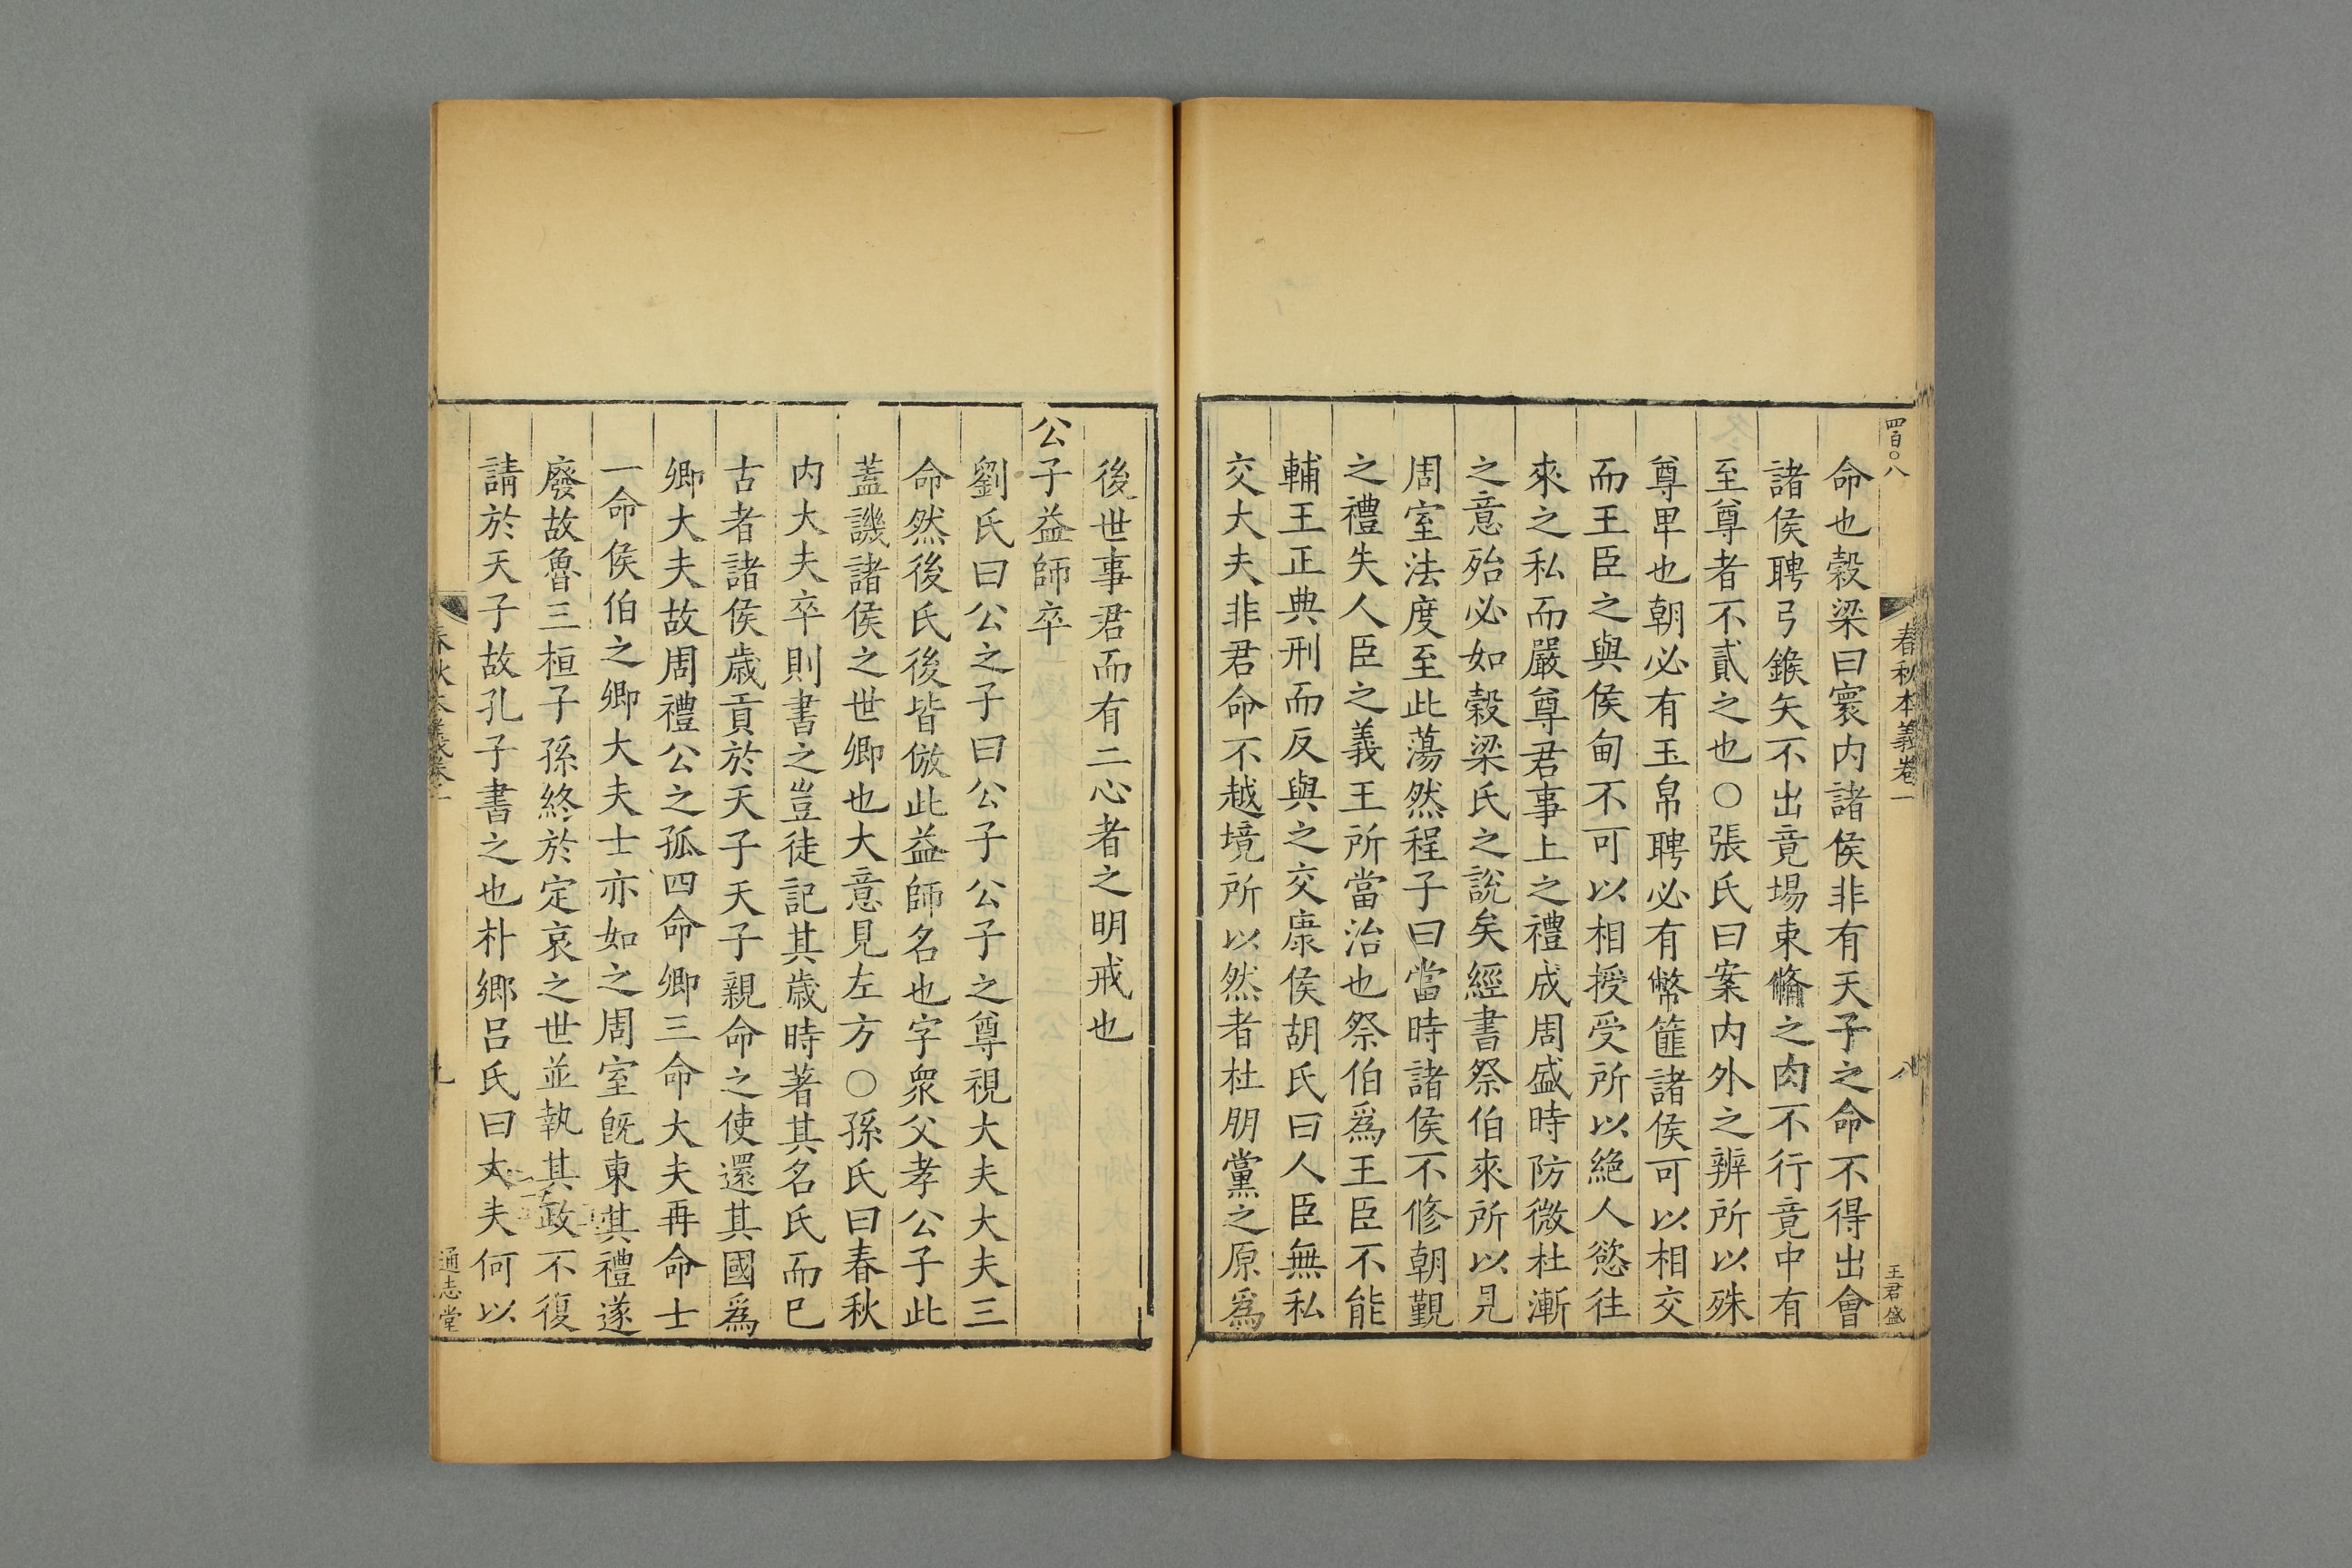 四百〇八
春秋本義卷一
八
王君盛
命也穀梁曰寰内諸侯非有天子之命不得出會
諸侯聘弓鍭矢不出竟場束脩之肉不行竟中有
至尊者不貳之也〇張氏曰案内外之辨所以殊
尊卑也朝必有玉帛聘必有幣篚諸侯可以相交
而王臣之與侯甸不可以相授受所以絶人慾往
來之私而嚴尊君事上之禮成周盛時防微杜漸
之意殆必如穀梁氏之說矣經書祭伯來所以見
周室法度至此蕩然程子曰當時諸侯不修朝覲
之禮失人臣之義王所當治也祭伯爲王臣不能
輔王正典刑而反與之交康侯胡氏曰人臣無私
交大夫非君命不越境所以然者杜朋黨之原爲
後世事君而有二心者之明戒也
公子益師卒
劉氏曰公之子曰公子公子之尊視大夫大夫三
命然後氏後皆倣此益師名也字衆父孝公子此
蓋譏諸侯之世卿也大意見左方〇孫氏曰春秋
内大夫卒則書之豈徒記其歲時著其名氏而已
古者諸侯歲貢於天子天子親命之使還其國爲
卿大夫故周禮公之孤四命卿三命大夫再命士
一命侯伯之卿大夫士亦如之周室旣東其禮遂
廢故魯三桓子孫終於定哀之世並執其政不復
請於天子故孔子書之也朴鄉吕氏曰大夫何以
春秋本義卷一
九
通志堂